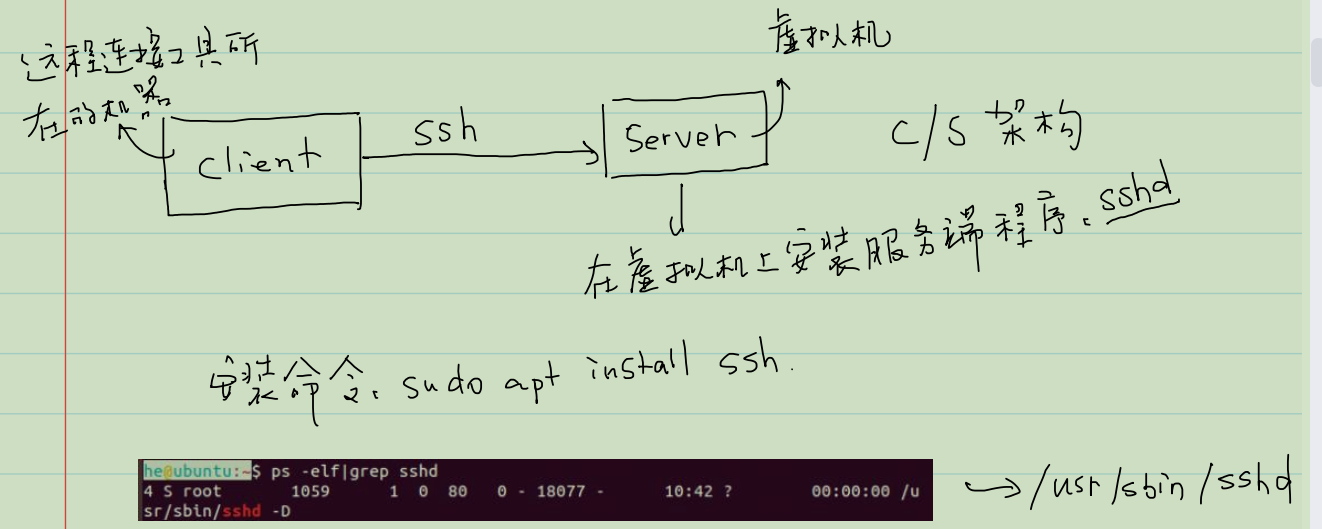 远程连接工具所
在的机器
虚拟机
client
ssh
server
C/S 架构
在虚拟机上安装服务端程序: sshd
安装命令: sudo apt install ssh.
he@ubuntu:~$ ps -elf|grep sshd
4 S root 1059 1 0 80 0 - 18077 - 10:42 ? 00:00:00 /u
sr/sbin/sshd -D
/usr/sbin/sshd